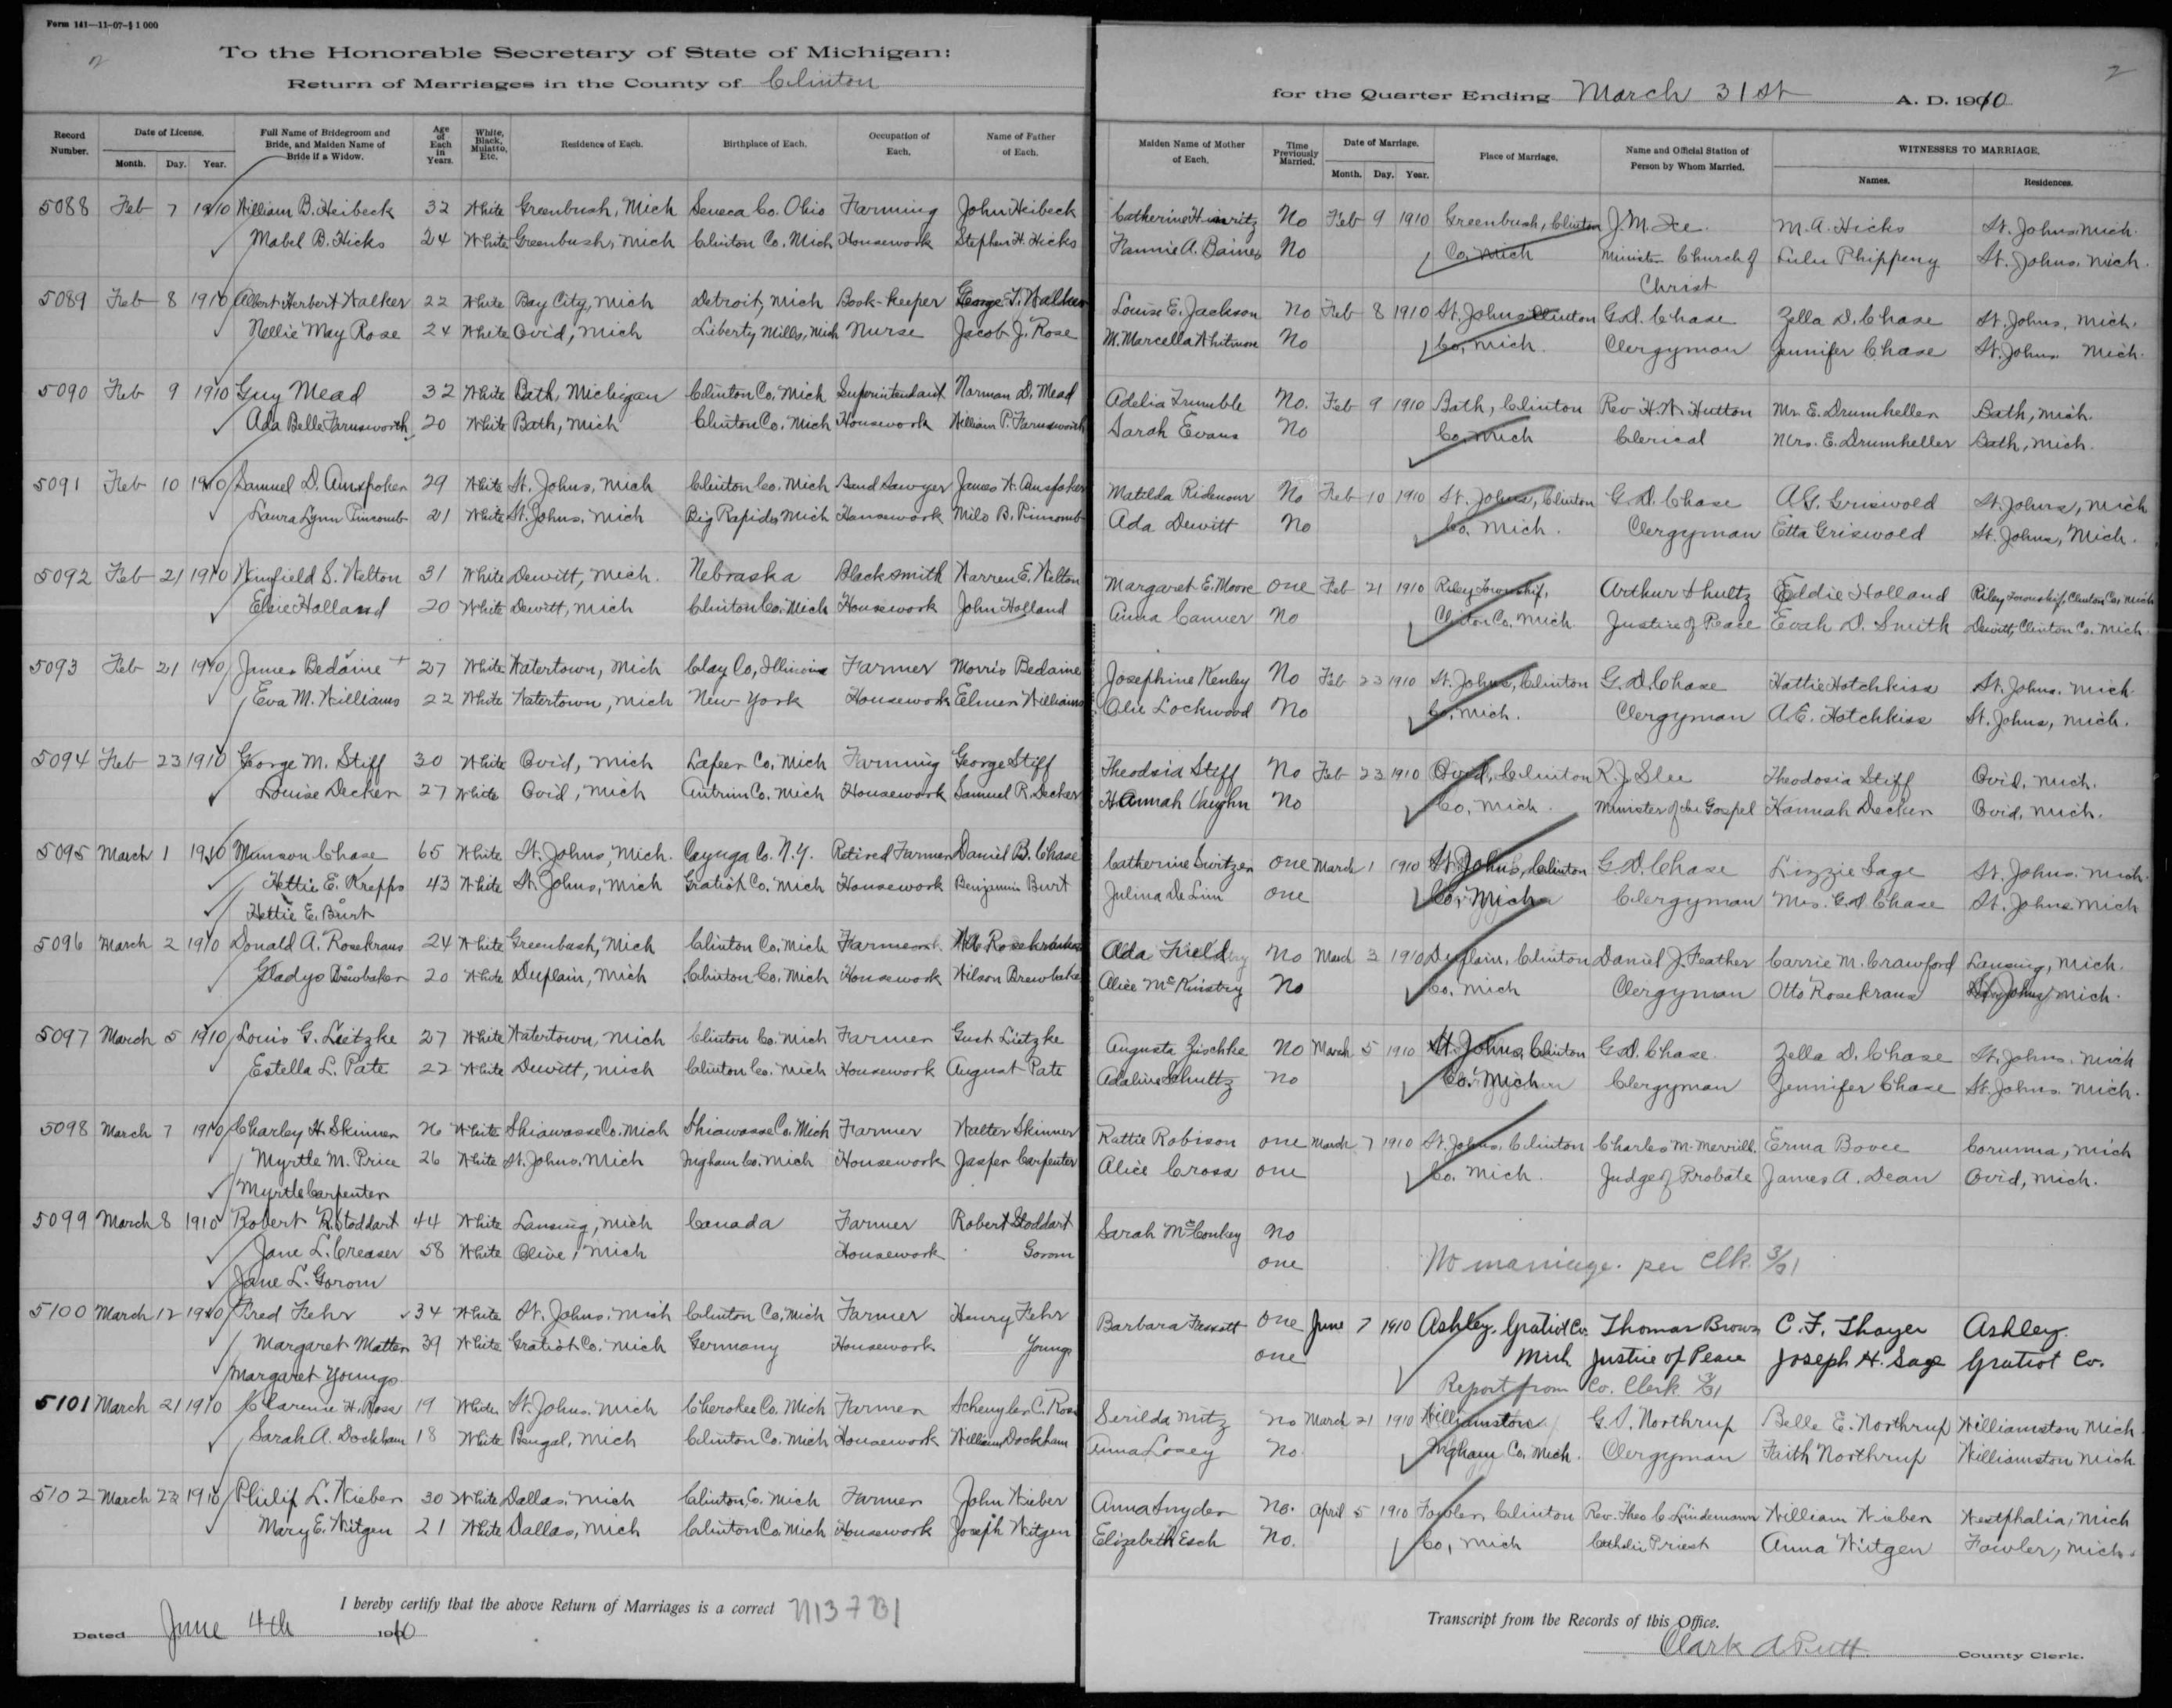 Form 141—11-07-§ 1 000
2
2
To the Honorable Secretary of State of Michigan:
Return of Marriages in the County of Clinton for the Quarter Ending March 31st A. D. 1910
Record Number. Date of License. Month. Day. Year. Full Name of Bridegroom and Bride, and Maiden Name of Bride if a Widow. Age of Each in Years. White, Black, Mulatto, Etc. Residence of Each. Birthplace of Each. Occupation of Each. Name of Father of Each. Maiden Name of Mother of Each. Time Previously Married. Date of Marriage. Month. Day. Year. Place of Marriage. Name and Official Station of Person by Whom Married. WITNESSES TO MARRIAGE. Names. Residences.
5088 Feb 7 1910 William B. Heibeck 32 White Greenbush, Mich Seneca Co. Ohio Farming John Heibeck Catherine No Feb 9 1910 Greenbush, Clinton J. M. M. A. Hicks St. Johns Mich.
Mabel B. Hicks 24 White Greenbush, Mich Clinton Co. Mich Housework Stephen H. Hicks Fannie A. Baines No Co. Mich Minister Church of Lulu Phippeny St. Johns, Mich.
Christ
5089 Feb 8 1910 Albert Herbert Walker 22 White Bay City, Mich Detroit, Mich Book-keeper George T. Walker Louise E. Jackson No Feb 8 1910 St. Johns Clinton G. D. Chase Zella D. Chase St. Johns, Mich.
Nellie May Rose 24 White Ovid, Mich Liberty Mills, Mich Nurse Jacob J. Rose M. Marcella Whitmore No Co, Mich. Clergyman Jennifer Chase St. Johns Mich.
5090 Feb 9 1910 Guy Mead 32 White Bath, Michigan Clinton Co. Mich Superintendant Norman D. Mead Adelia Trumble No. Feb 9 1910 Bath, Clinton Rev H. W. Hutton Mr. E. Drumheller Bath, Mich.
Ada Belle Farnsworth 20 White Bath, Mich Clinton Co. Mich Housework William P. Farnsworth Sarah Evans No Co, Mich Clerical Mrs. E. Drumheller Bath, Mich.
5091 Feb 10 1910 Samuel D. Amspoker 29 White St. Johns, Mich Clinton Co. Mich Band Sawyer James W. Amspoker Matilda Ridenour No Feb 10 1910 St. Johns, Clinton G. D. Chase A. G. Griswold St. Johns, Mich
Laura Lynn Pincomb 21 White St. Johns, Mich Big Rapids Mich Housework Milo B. Pincomb Ada Dewitt No Co. Mich. Clergyman Etta Griswold St. Johns, Mich.
5092 Feb 21 1910 Winfield S. Welton 31 White Dewitt, Mich. Nebraska Blacksmith Warren E. Welton Margaret E. Moore one Feb 21 1910 Riley Township, Arthur Shultz Eddie Holland Riley Township, Clinton Co, Mich
Elsie Holland 20 White Dewitt, Mich Clinton Co. Mich Housework John Holland Anna Canner No Clinton Co. Mich. Justice of Peace Evah D. Smith Dewitt, Clinton Co. Mich.
5093 Feb 21 1910 James Bedaine + 27 White Watertown, Mich Clay Co, Illinois Farmer Morris Bedaine Josephine Kenley No Feb 23 1910 St. Johns, Clinton G. D. Chase Hattie Hotchkiss St. Johns. Mich
Eva M. Williams 22 White Watertown, Mich New York Housework Elmer Williams Olie Lockwood No Co, Mich. Clergyman A. E. Hotchkiss St. Johns, Mich.
5094 Feb 23 1910 George M. Stiff 30 White Ovid, Mich Lapeer Co, Mich Farming George Stiff Theodsia Stiff No Feb 23 1910 Ovid, Clinton R. J. Slee Theodosia Stiff Ovid, Mich.
Louise Decker 27 White Ovid, Mich Antrim Co. Mich Housework Samuel R. Decker Hannah Vaughn No Co, Mich. Minister of the Gospel Hannah Decker Ovid, Mich.
5095 March 1 1910 Munson Chase 65 White St. Johns, Mich. Cayuga Co. N.Y. Retired Farmer Daniel B. Chase Catherine Switzer one March 1 1910 St. Johns, Clinton G. D. Chase Lizzie Sage St. Johns. Mich.
Hettie E. Krepps 43 White St. Johns, Mich Gratiot Co. Mich Housework Benjamin Burt Julina De Linn one Co. Mich Clergyman Mrs. G. D. Chase St. Johns Mich
Hettie E. Burt
5096 March 2 1910 Donald A. Rosekrans 24 White Greenbush, Mich Clinton Co. Mich Farmer Rosekrans Ada Field No March 3 1910 Duplain, Clinton Daniel J. Feather Carrie M. Crawford Lansing, Mich.
Gladys Brewbaker 20 White Duplain, Mich Clinton Co. Mich Housework Wilson Brewbaker Alice McKinstry No Co. Mich Clergyman Otto Rosekrans St. Johns Mich.
5097 March 5 1910 Louis G. Lietzke 27 White Watertown, Mich Clinton Co. Mich Farmer Gust Lietzke Augusta Zischke No March 5 1910 St. Johns, Clinton G. D. Chase. Zella D. Chase St. Johns. Mich
Estella L. Pate 22 White Dewitt, Mich Clinton Co. Mich Housework August Pate Adaline Schultz No Co. Mich Clergyman Jennifer Chase St. Johns. Mich.
5098 March 7 1910 Charley H. Skinner 26 White Shiawasse Co. Mich Shiawasse Co. Mich Farmer Walter Skinner Kattie Robison one March 7 1910 St. Johns, Clinton Charles M. Merrill. Erma Bovee Corunna, Mich
Myrtle M. Price 26 White St. Johns, Mich Ingham Co. Mich Housework Jasper Carpenter Alice Cross one Co. Mich. Judge of Probate James A. Dean Ovid, Mich.
Myrtle Carpenter
5099 March 8 1910 Robert R. Stoddart 44 White Lansing, Mich Canada Farmer Robert Stoddart Sarah McConkey No
Jane L. Creaser 58 White Olive, Mich Housework Gorom one No marriage per Clk. 3/31
Jane L. Gorom
5100 March 12 1910 Fred Fehr 34 White St. Johns, Mich Clinton Co, Mich Farmer Henry Fehr Barbara one June 7 1910 Ashley, Gratiot Co. Thomas Brown C. F. Thayer Ashley.
Margaret Matter 39 White Gratiot Co. Mich Germany Housework Youngs one Mich Justice of Peace Joseph H. Sage Gratiot Co.
Margaret Youngs Report from Co. Clerk
5101 March 21 1910 Clarence H. Rose 19 White St. Johns. Mich Cherokee Co. Mich Farmer Schuyler C. Rose Serilda Mitz No March 21 1910 Williamston G. S. Northrup Belle E. Northrup Williamston Mich.
Sarah A. Dockham 18 White Bengal, Mich Clinton Co. Mich Housework William Dockham Anna Losey No. Ingham Co. Mich. Clergyman Faith Northrup Williamston Mich
5102 March 22 1910 Philip L. Wieber 30 White Dallas, Mich Clinton Co. Mich Farmer John Wieber Anna Snyder No. April 5 1910 Fowler, Clinton Rev. Theo C. Lindemann William Wieber Westphalia, Mich
Mary E. Witgen 21 White Dallas, Mich Clinton Co Mich Housework Joseph Witgen Elizabeth Esch No. Co, Mich Catholic Priest Anna Witgen Fowler, Mich.
I hereby certify that the above Return of Marriages is a correct Transcript from the Records of this Office.
Dated June 4th 1910
Clark A Putt County Clerk.